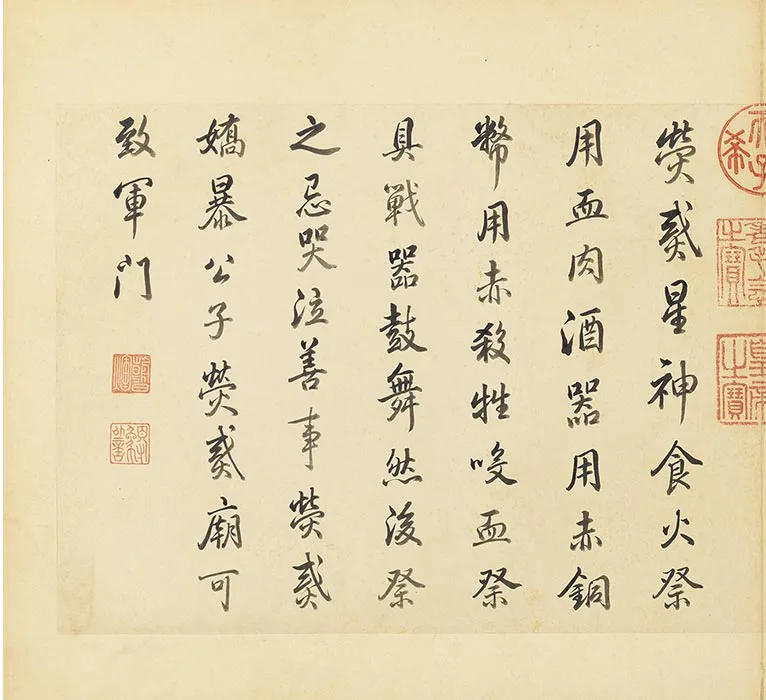 熒惑星神食火祭
用血肉酒器用赤銅
幣用赤殺牲血祭
具戦器鼓舞然後祭
之忌哭泣善事熒惑
嬌暴公子熒惑廟可
致軍門
之寶
之寶